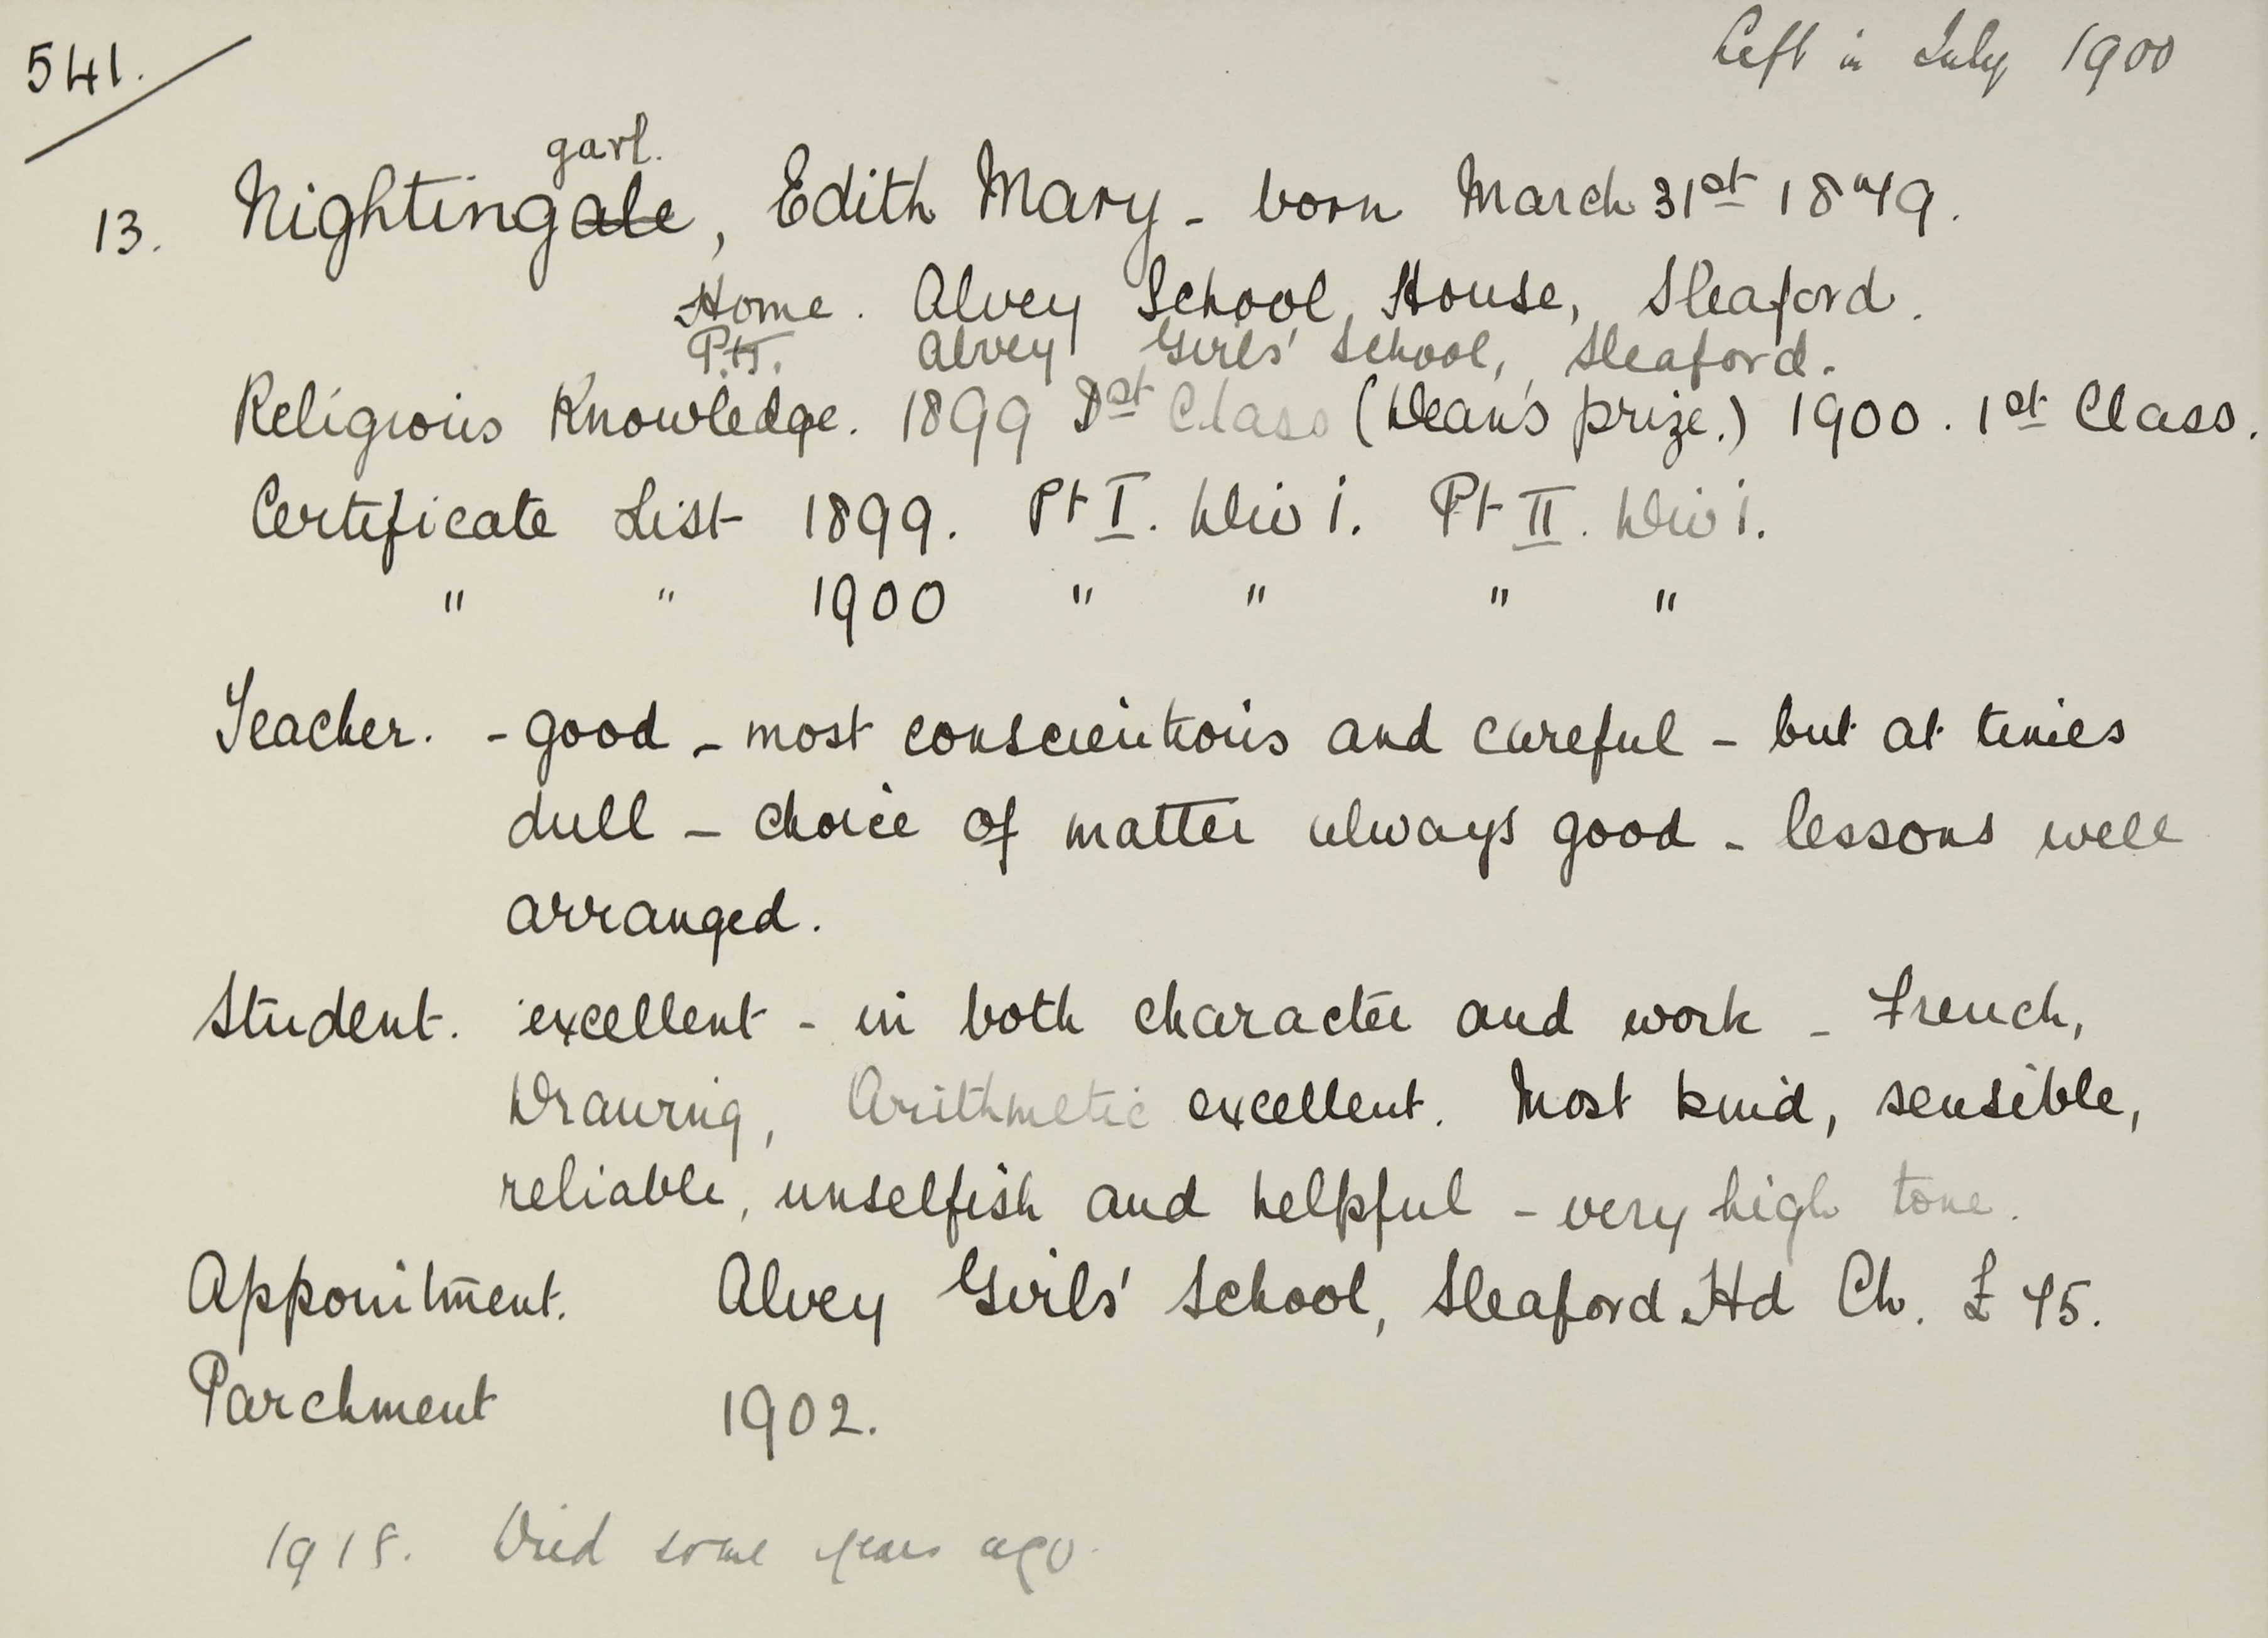 541.
Left in July 1900
garl.
13. Nightingale, Edith Mary - born March 31st 1879.
Home. Alvey School House, Sleaford.
P.T. Alvey Girls' School, Sleaford.
Religious Knowledge. 1899 1st Class (Dean's prize.) 1900. 1st Class.
Certificate List 1899. Pt I. Div i. Pt II. Div i.
" " 1900 " " " "
Teacher. - good - most conscientious and careful - but at times
dull - choice of matter always good - lessons well
arranged.
Student. excellent - in both character and work - French,
Drawing, Arithmetic excellent. Most kind, sensible,
reliable, unselfish and helpful - very high tone.
Appointment. Alvey Girls' School, Sleaford Hd Ch. £75.
Parchment 1902.
1918. Died some years ago.